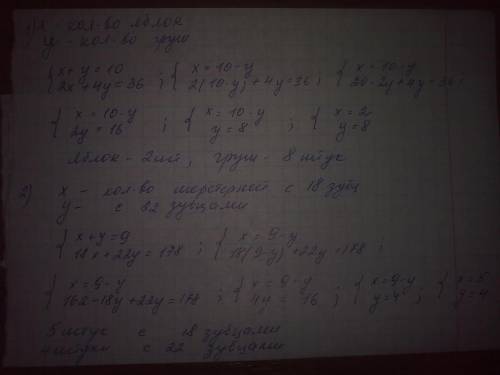 1) x - кол-во яблок
y - кол-во груш
{x+y=10 2x+4y=36 ; {x=10-y 2(10-y)+4y=36 ; {x=10-y 20-2y+4y=36 ;
{x=10-y 2y=16 ; {x=10-y y=8 ; {x=2 y=8
яблок - 2 шт, груш - 8 штук
2) x - кол-во шестерней с 18 зубц
y - с 22 зубцами
{x+y=9 18x+22y=178 ; {x=9-y 18(9-y)+22y=178 ;
{x=9-y 162-18y+22y=178 ; {x=9-y 4y=16 ; {x=9-y y=4 ; {x=5 y=4
5 штук с 18 зубцами
4 штуки с 22 зубцами